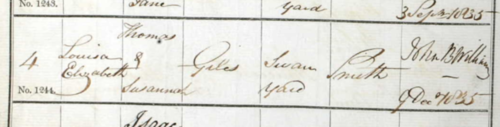 No. 1243.
Jane
Yard
3 Sepr 1835
4
Louisa
Elizabeth
Thomas
&
Susannah
Giles
Swan
Yard
Smith
John B
9 Decr 1835
No. 1244.
Isaac